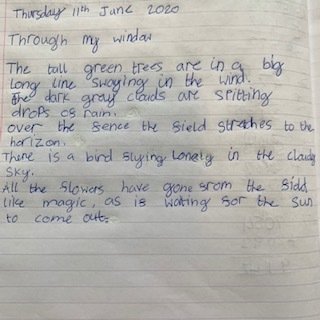 Thursday 11th June 2020
Through my window
The tall green trees are in a big
long line swaying in the wind.
The dark gray clouds are spitting
drops of rain.
over the fence the field stretches to the
horizon.
There is a bird flying lonely in the cloudy
sky.
All the flowers have gone from the field
like magic, as is waiting for the sun
to come out.